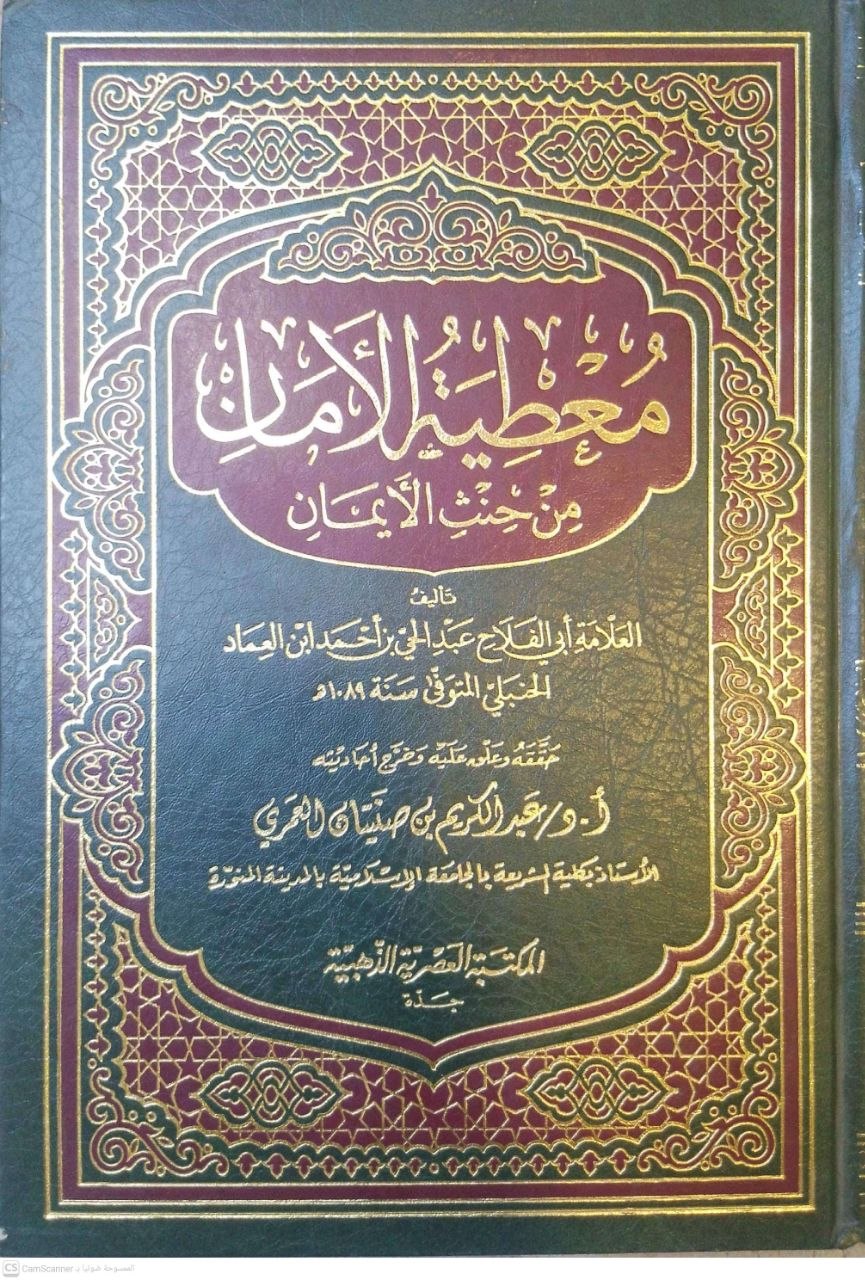 مُعْطِيَةُ الأَمَانِ
مِنْ حِنْثِ الأَيْمَانِ
تَأليفُ
العَلَّامَة أبي الفَلَاح عَبْد الحَيّ بن أحْمَد ابن العِمَاد
الحَنبَليّ المتوَفّى سَنَة ١٠٨٩هـ
حَقَّقَهُ وَعَلّق عَلَيْه وَخَرَّج أحَاديثه
أ.د/ عَبد الكريم بن صنيتان العمري
الأستاذ بكلية الشريعة بالجامعة الإسلاميّة بالمدينة المنوّرة
المكتبَة العَصريّة الذّهبيّة
جَدّة
CS CamScanner الممسوحة ضوئيا بـ